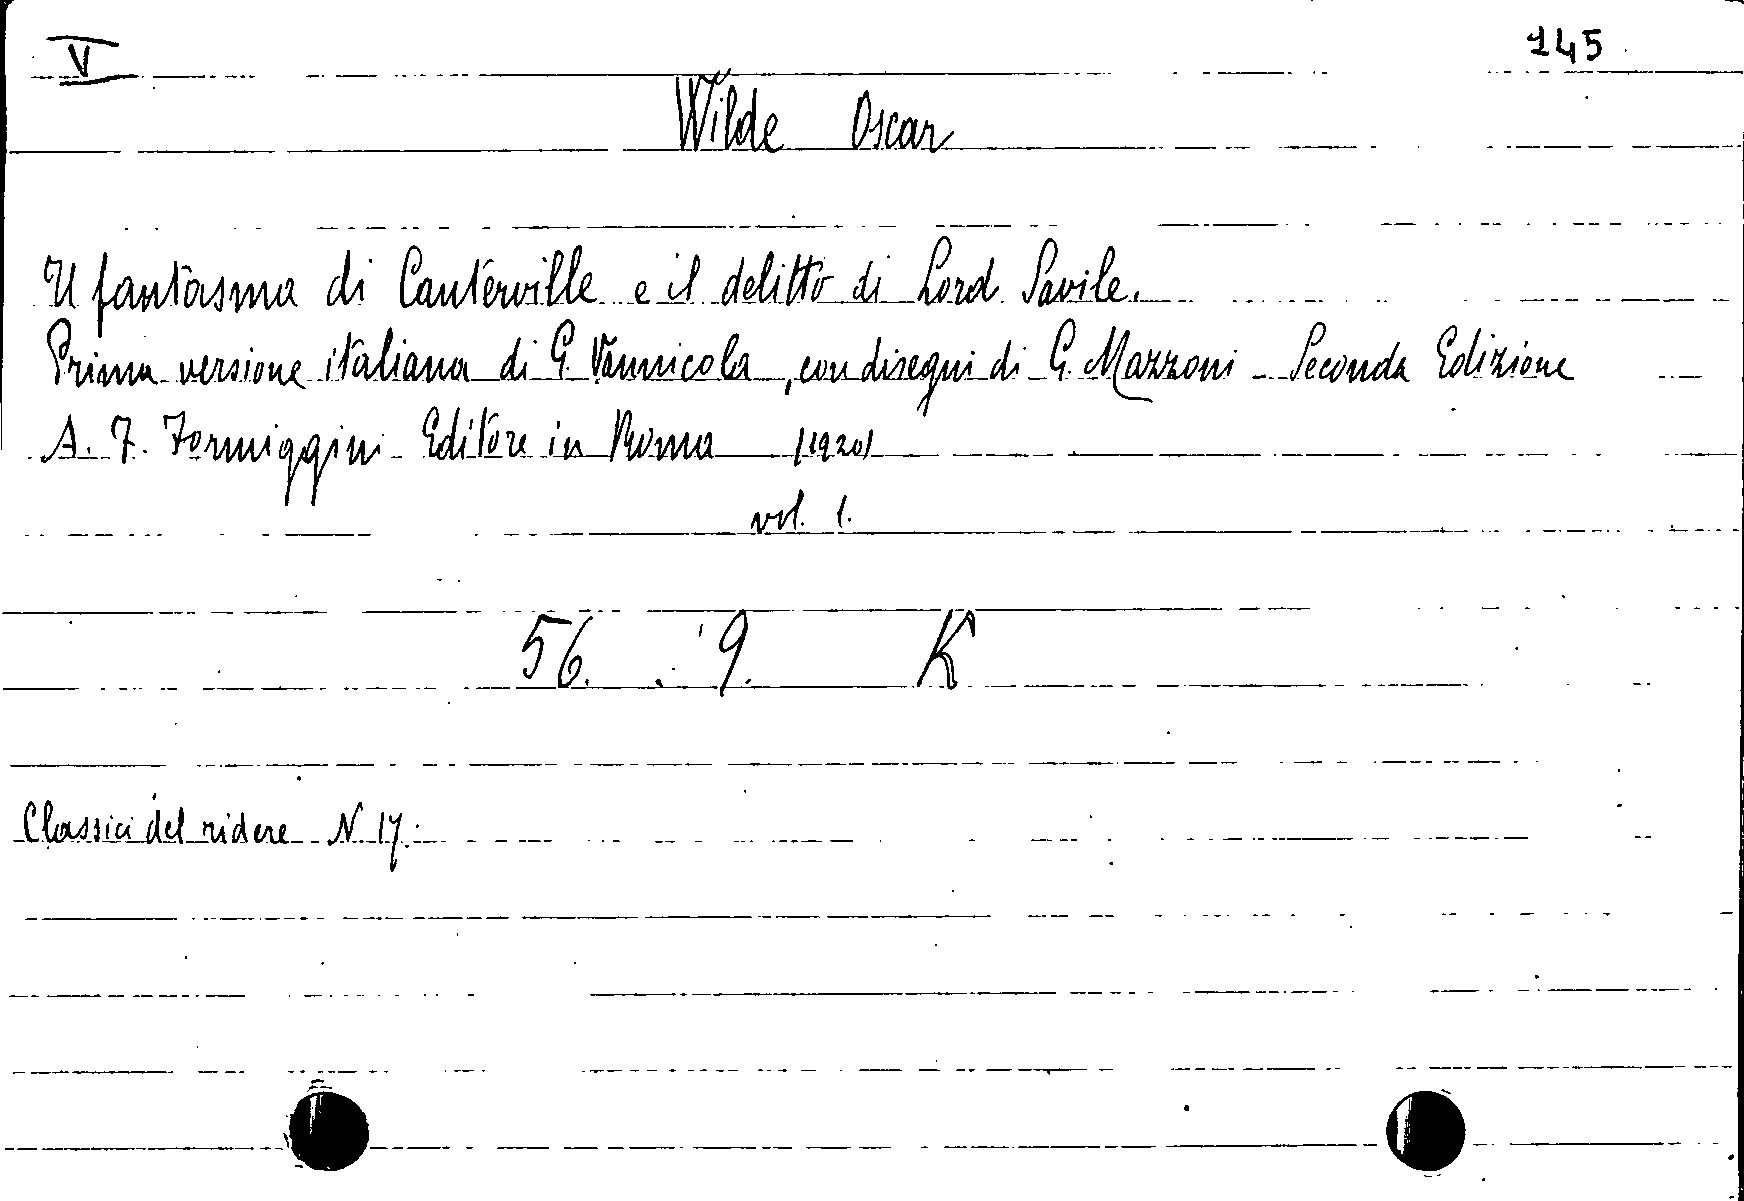 V 145
Wilde Oscar
Il fantasma di Canterville e il delitto di Lord Savile.
Prima versione italiana di G. Vannicola, con disegni di G. Mazzoni - Seconda Edizione
A. F. Formiggini Editore in Roma (1920)
vol. 1.
56. 9. K
Classici del ridere N. 17.